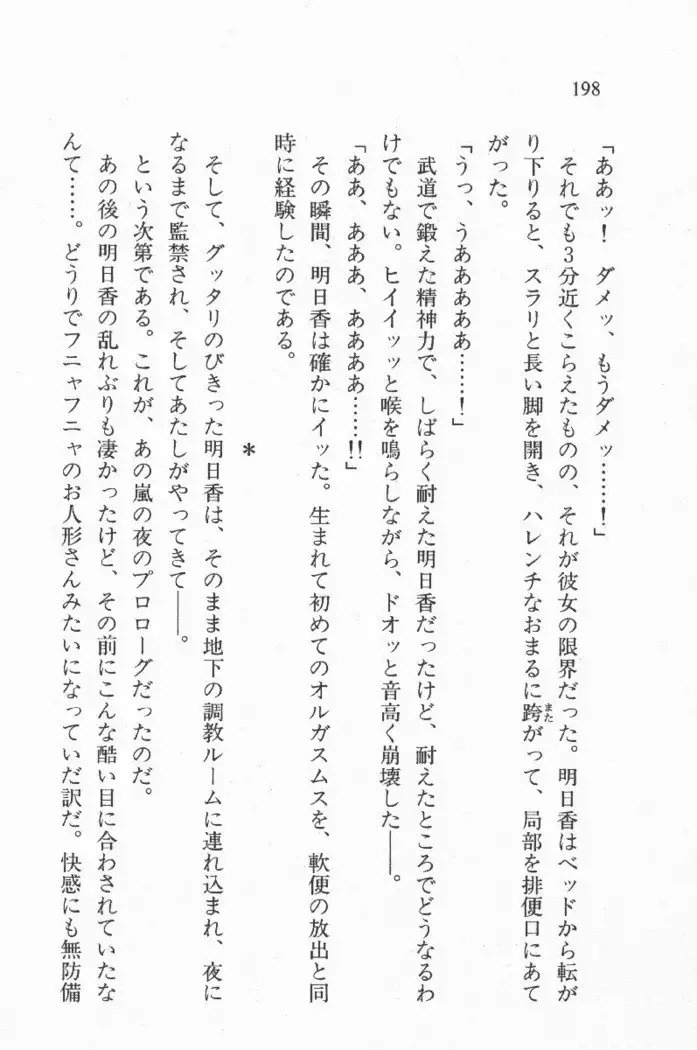 198
「ああッ！　ダメッ、もうダメッ……！」
　それでも3分近くこらえたものの、それが彼女の限界だった。明日香はベッドから転が
り下りると、スラリと長い脚を開き、ハレンチなおまるに跨がって、局部を排便口にあて
また
がった。
「うっ、うああああぁ……！」
　武道で鍛えた精神力で、しばらく耐えた明日香だったけど、耐えたところでどうなるわ
けでもない。ヒイイッッと喉を鳴らしながら、ドオッと音高く崩壊した――。
「ああ、あああ、ああああ……!!」
　その瞬間、明日香は確かにイッた。生まれて初めてのオルガスムスを、軟便の放出と同
時に経験したのである。
＊
　そして、グッタリのびきった明日香は、そのまま地下の調教ルームに連れ込まれ、夜に
なるまで監禁され、そしてあたしがやってきて――。
　という次第である。これが、あの嵐の夜のプロローグだったのだ。
　あの後の明日香の乱れぶりも凄かったけど、その前にこんな酷い目に合わされていたな
んて……。どうりでフニャフニャのお人形さんみたいになっていだ訳だ。快感にも無防備